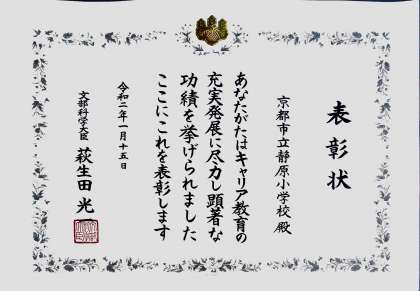 表彰状
京都市立静原小学校 殿
あなたがたはキャリア教育の
充実発展に尽力し顕著な
功績を挙げられました
ここにこれを表彰します
令和二年一月十五日
文部科学大臣 萩生田光一